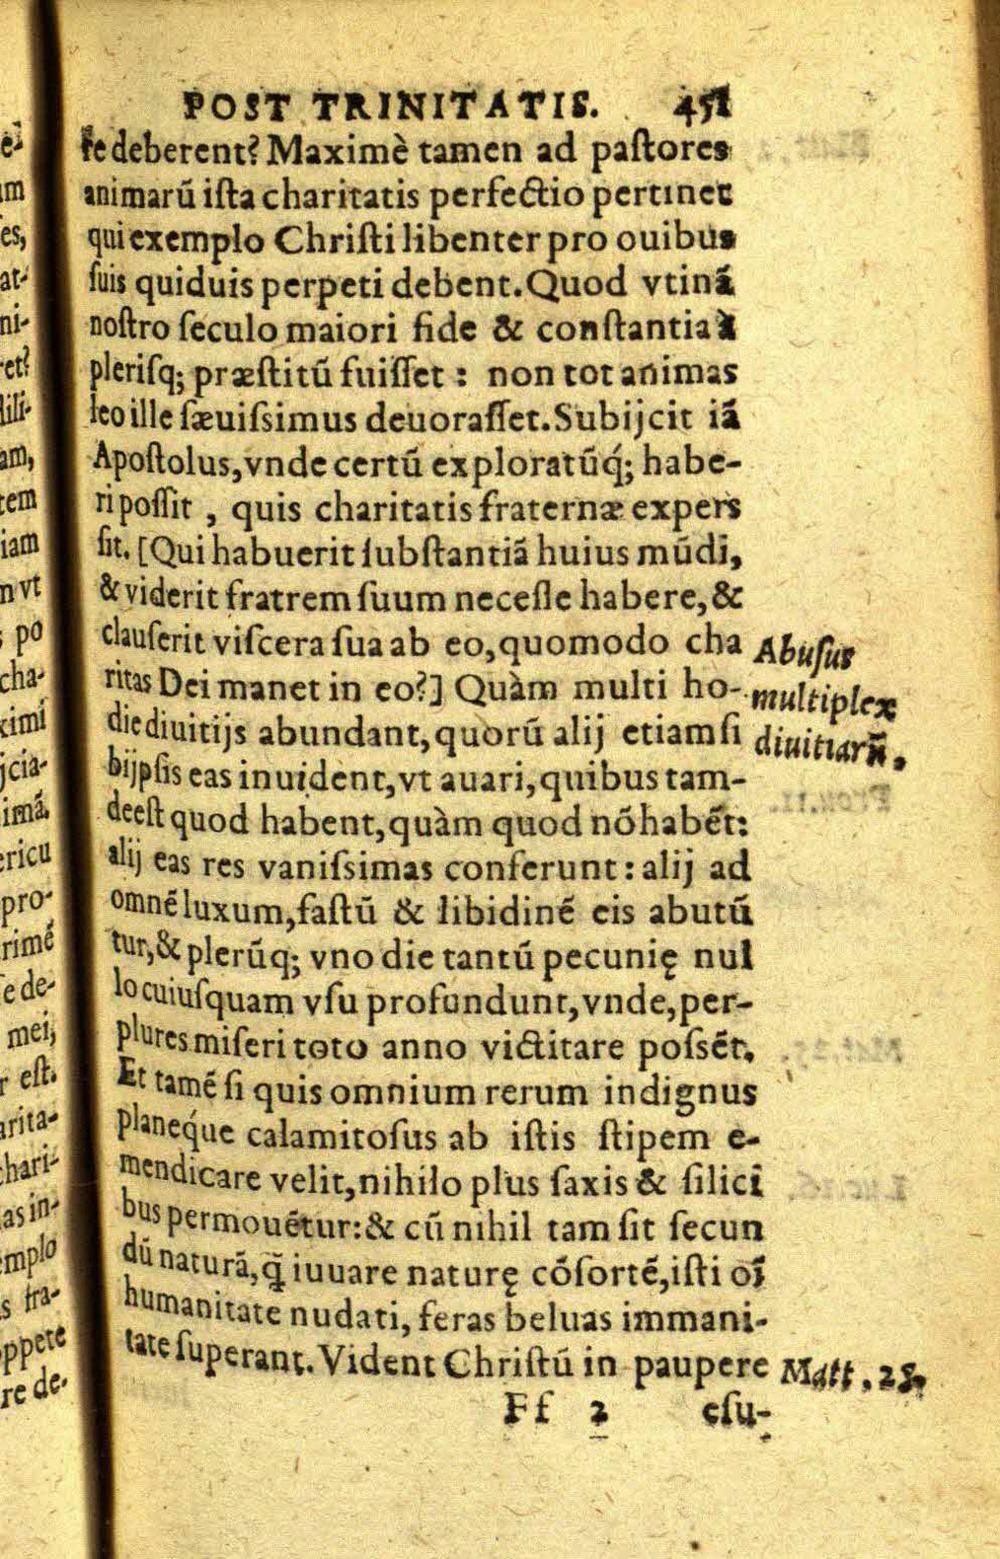 POST TRINITATIS. 451
re deberent? Maximè tamen ad paſtores
animarū iſta charitatis perfectio pertinet
qui exemplo Chriſti libenter pro ouibus
ſuis quiduis perpeti debent. Quod vtinā
noſtro ſeculo maiori fide & conſtantia à
pleriſq; præſtitū fuiſſet : non tot animas
leo ille ſæuiſsimus deuoraſſet. Subijcit iā
Apoſtolus, vnde certū exploratūq́; habe-
ri poſſit , quis charitatis fraternæ expers
ſit. [Qui habuerit ſubſtantiā huius mūdi,
& viderit fratrem ſuum neceſſe habere, &
clauſerit viſcera ſua ab eo, quomodo cha
Abuſus
ritas Dei manet in eo?] Quàm multi ho-
multiplex
die diuitijs abundant, quorū alij etiam ſi
diuitiarū.
bi ipſis eas inuident, vt auari, quibus tam-
deeſt quod habent, quàm quod nō habēt:
alij eas res vaniſsimas conferunt: alij ad
omnē luxum, faſtū & libidinē eis abutū
tur, & plerūq; vno die tantū pecunię nul
lo cuiuſquam vſu profundunt, vnde, per-
plures miſeri toto anno victitare poſsēt.
Et tamē ſi quis omnium rerum indignus
planeq́ue calamitoſus ab iſtis ſtipem e-
mendicare velit, nihilo plus ſaxis & ſilici
bus permouētur: & cū nihil tam ſit ſecun
dū naturā, q̄ iuuare naturę cōſortē, iſti oī
humanitate nudati, feras beluas immani-
tate ſuperant. Vident Chriſtū in paupere
Matt. 25.
Ff 2 eſu-